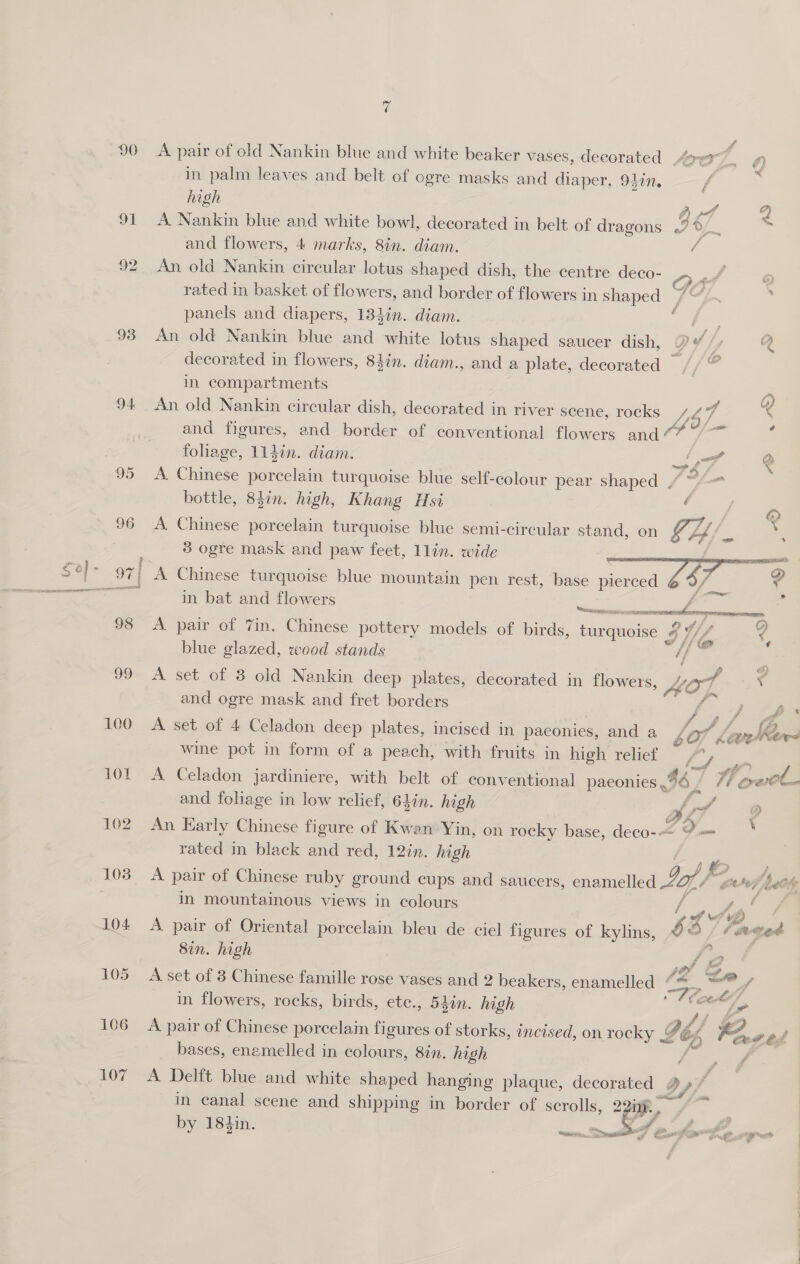 7
90 A pair of old Nankin blue and white beaker vases, decorated
in palm leaves and belt of ogre masks and diaper, 9½in.
high
91 A Nankin blue and white bowl, decorated in belt of dragons
and flowers, 4 marks, 8in. diam.
92 An old Nankin circular lotus shaped dish, the centre deco-
rated in basket of flowers, and border of flowers in shaped
panels and diapers, 13½in. diam.
93 An old Nankin blue and white lotus shaped saucer dish,
decorated in flowers, 8½in. diam., and a plate, decorated
in compartments
94 An old Nankin circular dish, decorated in river scene, rocks
and figures, and border of conventional flowers and
foliage, 11½in. diam.
95 A Chinese porcelain turquoise blue self-colour pear shaped
bottle, 8½in. high, Khang Hsi
96 A Chinese porcelain turquoise blue semi-circular stand, on
3 ogre mask and paw feet, 11in. wide
97 A Chinese turquoise blue mountain pen rest, base pierced
in bat and flowers
98 A pair of 7in. Chinese pottery models of birds, turquoise
blue glazed, wood stands
99 A set of 3 old Nankin deep plates, decorated in flowers,
and ogre mask and fret borders
100 A set of 4 Celadon deep plates, incised in paeonies, and a
wine pot in form of a peach, with fruits in high relief
101 A Celadon jardiniere, with belt of conventional paeonies
and foliage in low relief, 6½in. high
102 An Early Chinese figure of Kwan Yin, on rocky base, deco-
rated in black and red, 12in. high
103 A pair of Chinese ruby ground cups and saucers, enamelled
in mountainous views in colours
104 A pair of Oriental porcelain bleu de ciel figures of kylins,
8in. high
105 A set of 3 Chinese famille rose vases and 2 beakers, enamelled
in flowers, rocks, birds, etc., 5½in. high
106 A pair of Chinese porcelain figures of storks, incised, on rocky
bases, enamelled in colours, 8in. high
107 A Delft blue and white shaped hanging plaque, decorated
in canal scene and shipping in border of scrolls, 22in.
by 18½in.